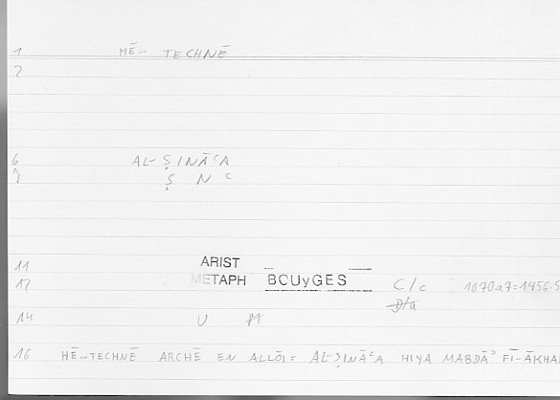 1 HĒ... TECHNĒ
2
6 AL-ṢINĀʿA
7 Ṣ N ʿ
11 ARIST
12 METAPH BOUyGES C/c 1070a7=1456.5
D/a
14 U M
16 HĒ...TECHNĒ ARCHĒ EN ALLŌI = AL-ṢINĀʿA HIYA MABDĀʾ FĪ-ĀKHA